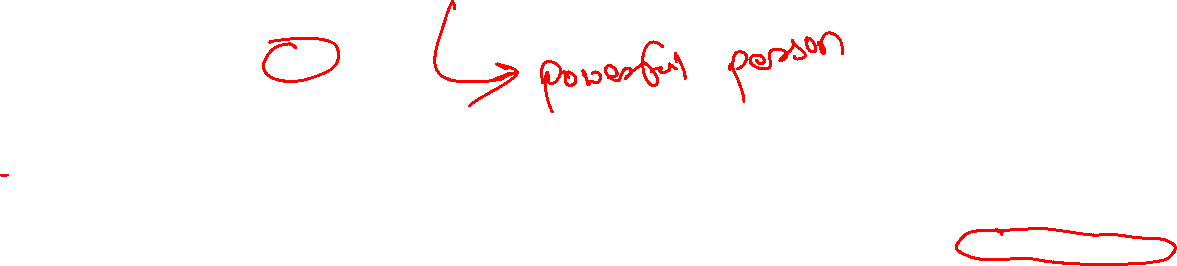 powerful person